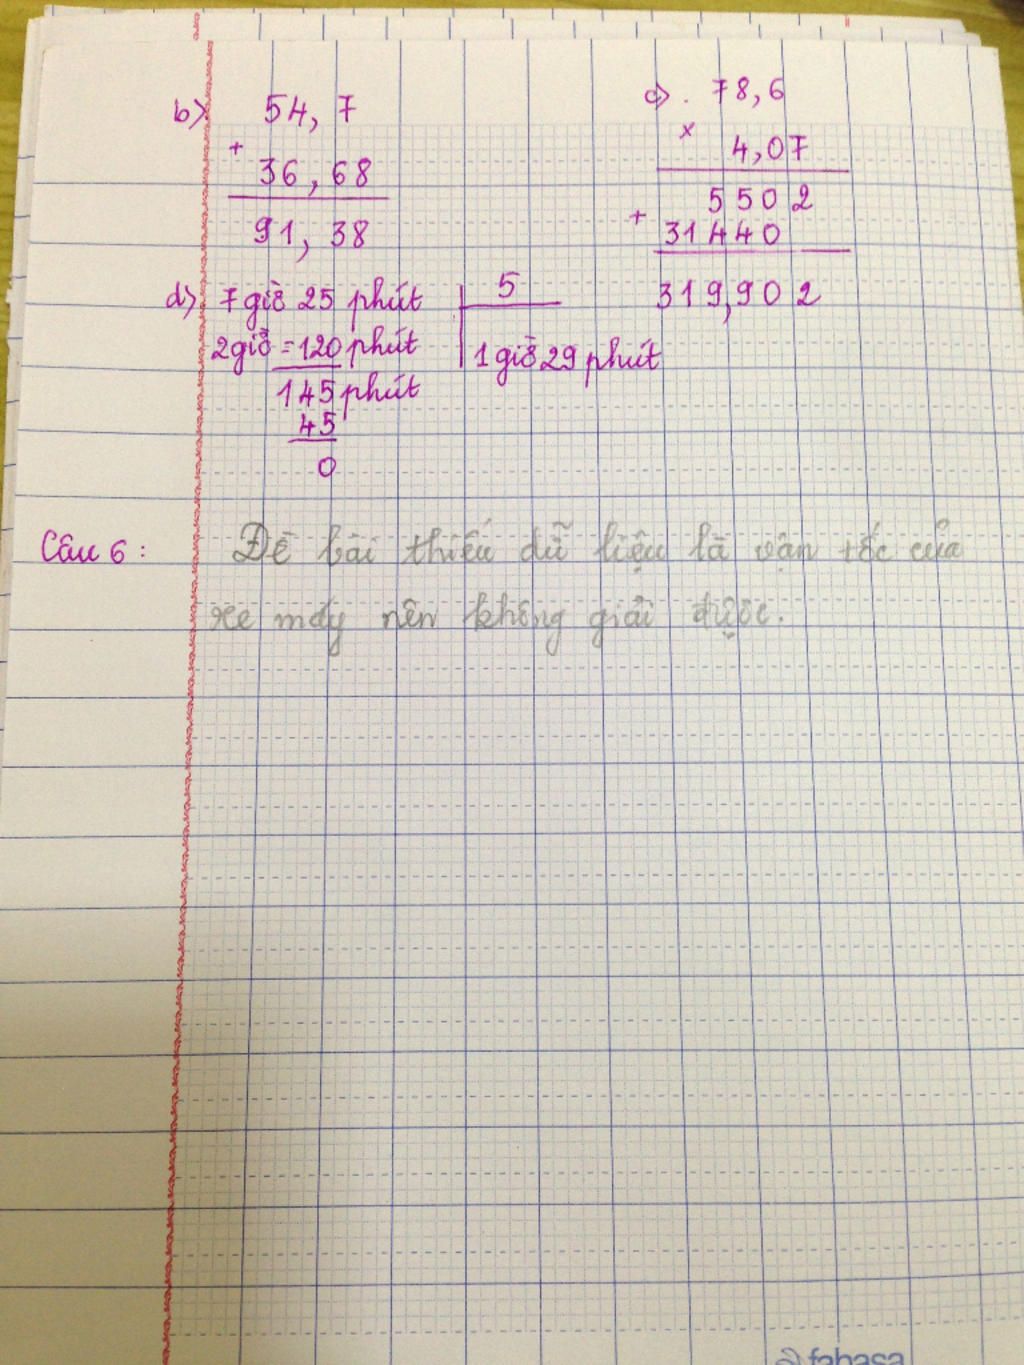 b) 54,7
+
36,68
91,38
c) . 78,6
x
4,07
5502
+
31440
319,902
d) 7 giờ 25 phút 5
2 giờ = 120 phút 1 giờ 29 phút
145 phút
45
0
Câu 6 : Đề bài thiếu dữ liệu là vận tốc của
xe máy nên không giải được.
fahasa